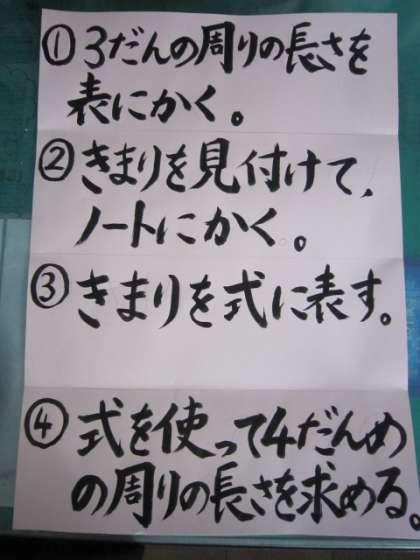 ①3だんの周りの長さを
表にかく。
②きまりを見付けて、
ノートにかく。
③きまりを式に表す。
④式を使って4だんめ
の周りの長さを求める。